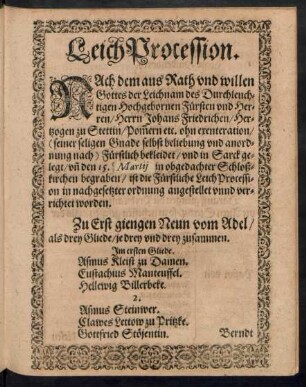 LeichProcession.
NAch dem aus Rath vnd willen
Gottes der Leichnam des Durchleuch-
tigen Hochgebornen Fürsten vnd Her-
ren/ Herrn Johans Friedrichen/ Her-
tzogen zu Stettin/ Pom̄ern etc. ohn exenteration/
(seiner seligen Gnade selbst beliebung vnd anord-
nung nach) Fürstlich bekleidet/ vnd in Sarck ge-
legt/ vn̄ den 15. Martij in obgedachter Schloß-
kirchen begraben/ ist die Fürstliche Leich Processi-
on in nachgesetzter ordnung angestellet vnnd ver-
richtet worden.
Zu Erst giengen Neun vom Adel/
als drey Gliede/ je drey vnd drey zusammen.
Im ersten Gliede.
Asmus Kleist zu Damen.
Eustachius Manteuffel.
Hellewig Billerbeke.
2.
Asmus Steinwer.
Clawes Lettow zu Pritzke.
Gottfried Stöjentin.
Berndt